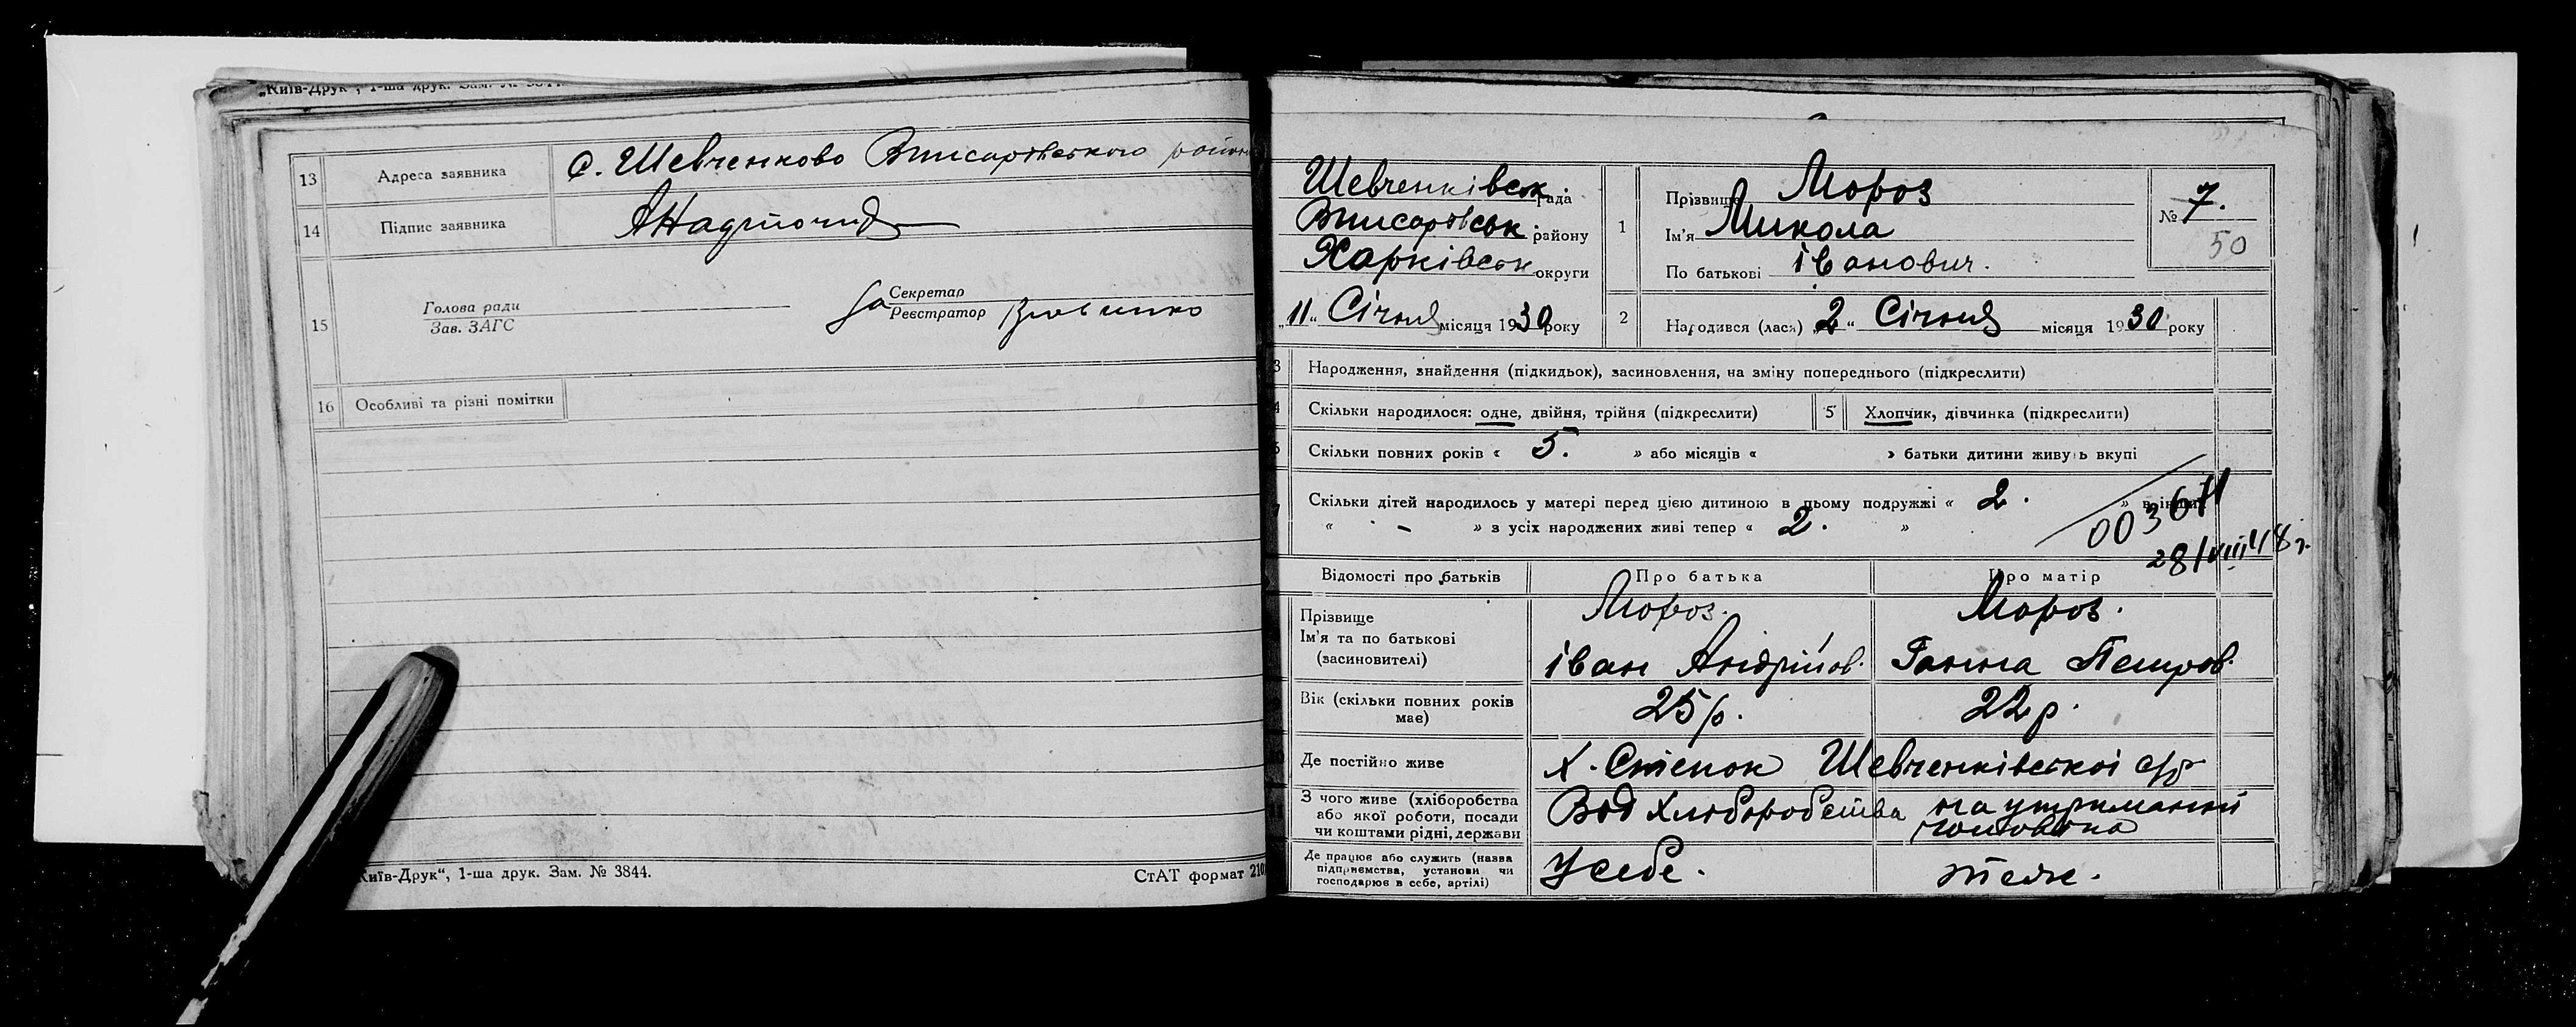 13 Адреса заявника с. Шевченково Вписарівського район
14 Підпис заявника АНадточий
15 Голова ради
Зав. ЗАГС
за Секретар
Реєстратор
16 Особливі та різні помітки
Київ-Друк“, 1-ша друк. Зам. № 3844.
СтАТ формат 210
Шевченківськ рада
району
Харківськ округи
„11“ Січня місяця 1930 року
1 Прізвище Мороз
Ім'я Микола
По батькові Іванович.
№ 7.
50
2 Народився (лася) 2“ Січня місяця 1930 року
3 Народження, знайдення (підкидьок), засиновлення, на зміну попереднього (підкреслити)
4 Скільки народилося: одне, двійня, трійня (підкреслити) 5 Хлопчик, дівчинка (підкреслити)
Скільки повних років « 5. » або місяців « » батьки дитини живуть вкупі
Скільки дітей народилось у матері перед цією дитиною в цьому подружжі « 2. »
« - » з усіх народжених живі тепер « 2. »
28/VIII 48 г.
Відомості про батьків Про батька Про матір
Прізвище Мороз. Мороз.
Ім'я та по батькові
(засиновителі) Іван Андрійов. Ганна Петров.
Вік (скільки повних років
має) 25 р. 22 р.
Де постійно живе Х. Стенок Шевченківської с/р
З чого живе (хліборобства
або якої роботи, посади
чи коштами рідні, держави Від хліборобства на утриманні
чоловіка
Де працює або служить (назва
підприємства, установи чи
господарює в себе, артілі) У себе. теж.